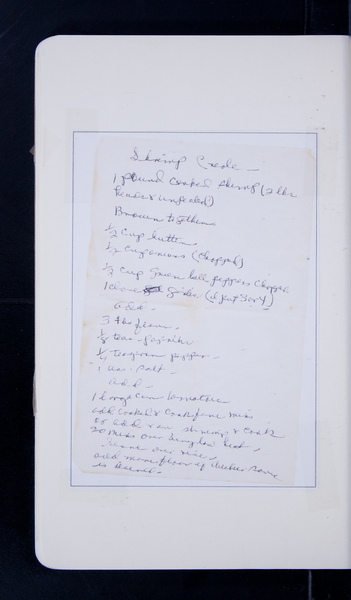 Shrimp Creole -
1 pound cooked shrimp (2 lbs
heads & unpeeled)
Brown together
1/2 cup butter
1/2 cup onions (chopped)
1/2 cup green bell peppers chopped
1 clove garlic (
add -
3 tbs flour -
1/8 teas. paprika
1/4 teaspoon pepper -
1 teas. salt -
add -
1 large can tomatoes
add cooked & cook five mins
or add raw shrimp & cook
20 mins over low heat,
serve over rice,
add more flour if thicker sauce
is desired.